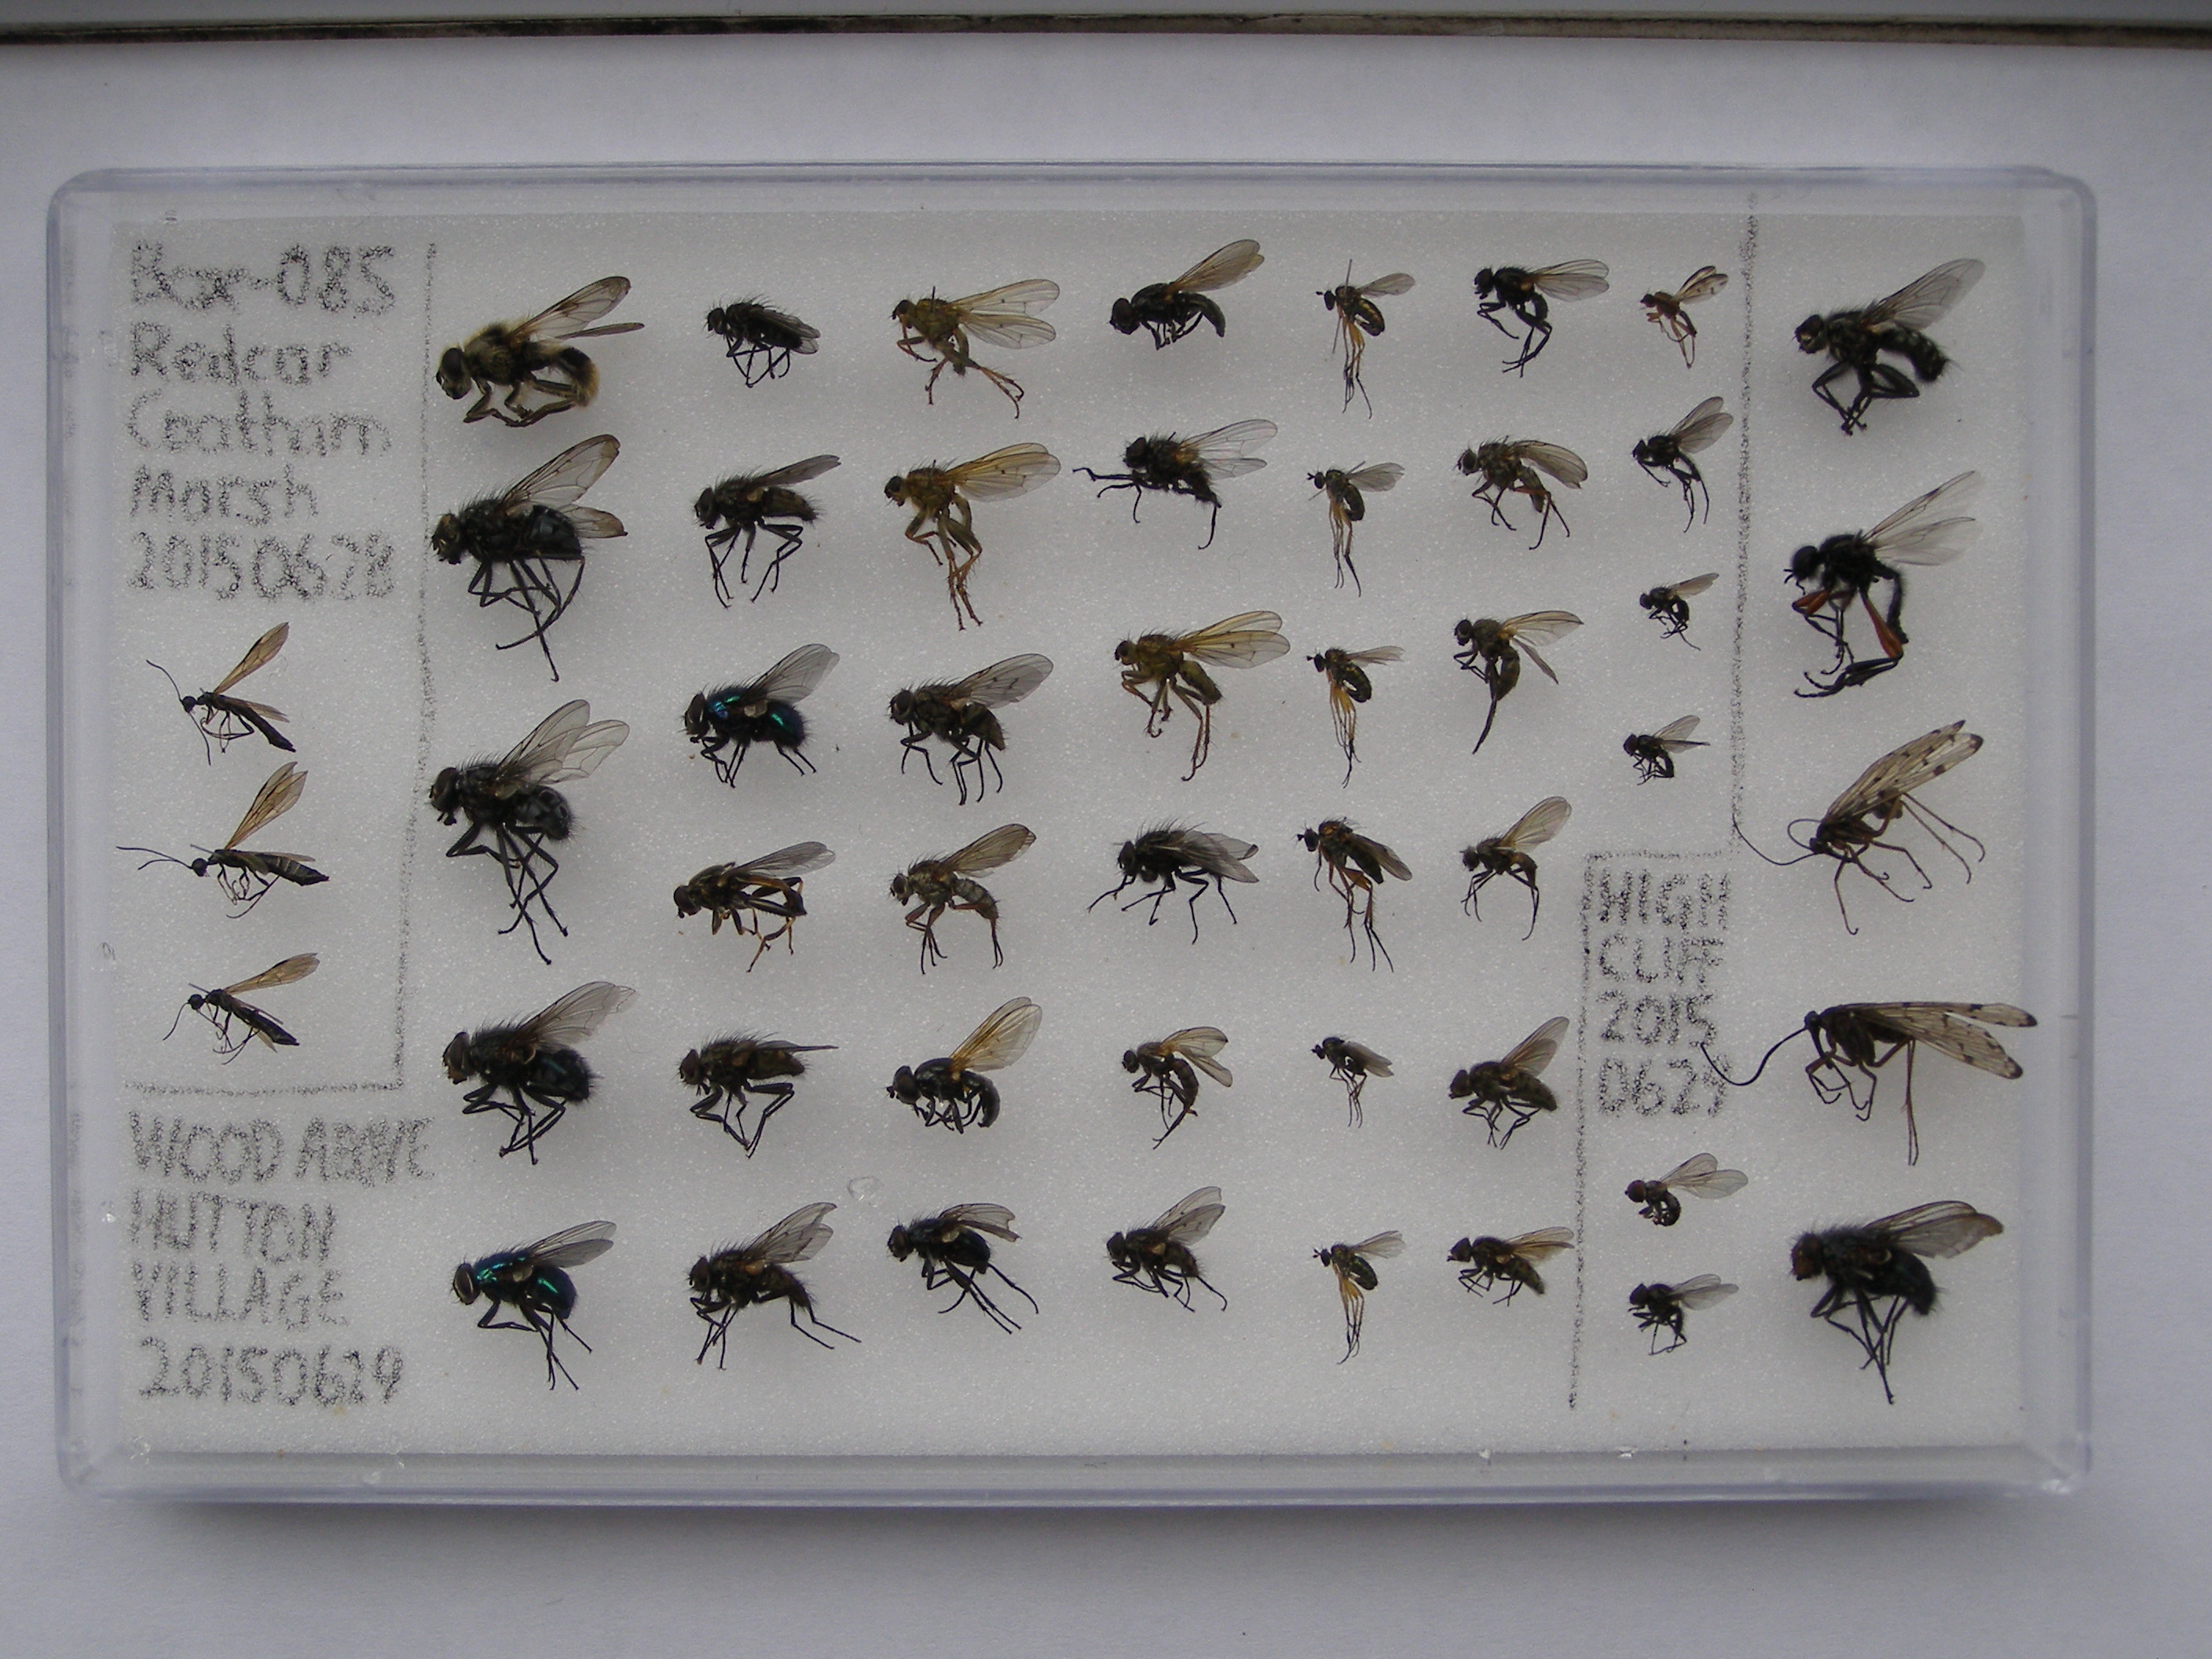 Box-085
Redcar
Coatham
Marsh
20150628
WOOD ABOVE
HUTTON
VILLAGE
20150629
HIGH
CLIFF
2015
0629